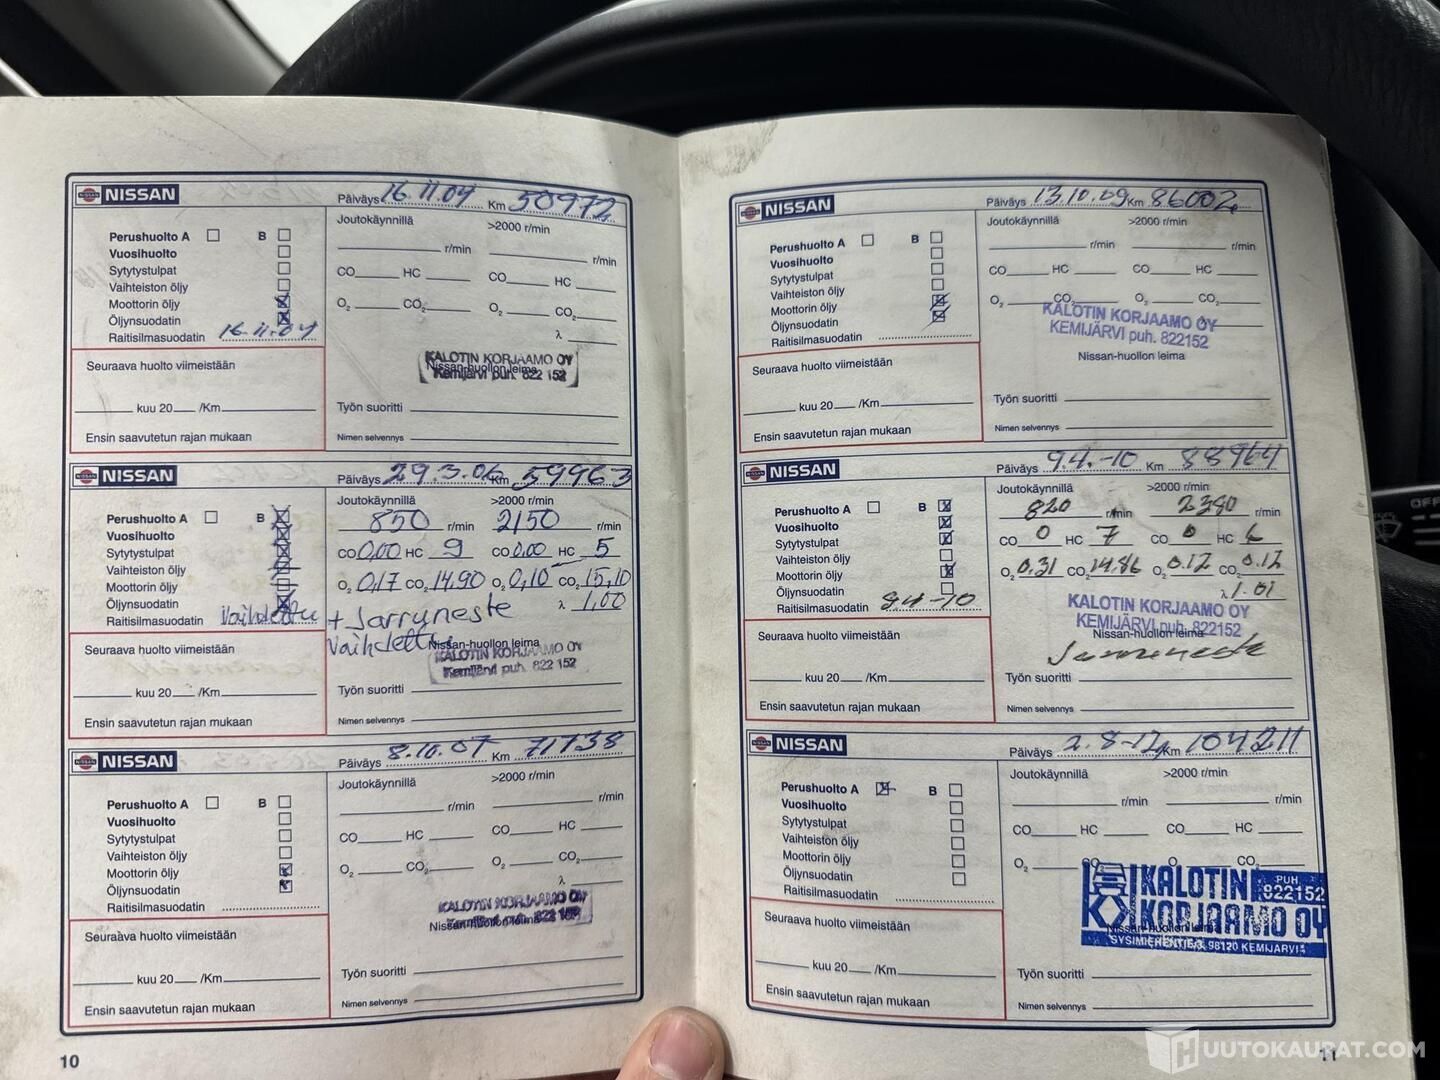 NISSAN
Päiväys 16.11.04 Km 50972
Perushuolto A B
Vuosihuolto
Sytytystulpat
Vaihteiston öljy
Moottorin öljy
Öljynsuodatin
Raitisilmasuodatin 16.11.04
Joutokäynnillä >2000 r/min
r/min r/min
CO HC CO HC
O2 CO2 O2 CO2
λ
KALOTIN KORJAAMO OY
Nissan-huollon leima
Kemijärvi puh. 822 152
Seuraava huolto viimeistään
kuu 20 /Km
Ensin saavutetun rajan mukaan
Työn suoritti
Nimen selvennys
NISSAN
Päiväys 29.3.06 Km 59963
Perushuolto A B
Vuosihuolto
Sytytystulpat
Vaihteiston öljy
Moottorin öljy
Öljynsuodatin
Raitisilmasuodatin Vaihdettu
Joutokäynnillä >2000 r/min
850 r/min 2150 r/min
CO 0,00 HC 9 CO 0,00 HC 5
O2 0,17 CO2 14,90 O2 0,10 CO2 15,10
λ 1,00
+ Jarryneste
Vaihdettu
Nissan-huollon leima
KALOTIN KORJAAMO OY
Kemijärvi puh. 822 152
Seuraava huolto viimeistään
kuu 20 /Km
Ensin saavutetun rajan mukaan
Työn suoritti
Nimen selvennys
NISSAN
Päiväys 8.10.07 Km 71738
Perushuolto A B
Vuosihuolto
Sytytystulpat
Vaihteiston öljy
Moottorin öljy
Öljynsuodatin
Raitisilmasuodatin
Joutokäynnillä >2000 r/min
r/min r/min
CO HC CO HC
O2 CO2 O2 CO2
λ
KALOTIN KORJAAMO OY
Kemijärvi puh. 822 152
Nissan-huollon leima
Seuraava huolto viimeistään
kuu 20 /Km
Ensin saavutetun rajan mukaan
Työn suoritti
Nimen selvennys
10
NISSAN
Päiväys 13.10.09 Km 86002
Perushuolto A B
Vuosihuolto
Sytytystulpat
Vaihteiston öljy
Moottorin öljy
Öljynsuodatin
Raitisilmasuodatin
Joutokäynnillä >2000 r/min
r/min r/min
CO HC CO HC
O2 CO2 O2 CO2
KALOTIN KORJAAMO OY
KEMIJÄRVI puh. 822152
Nissan-huollon leima
Seuraava huolto viimeistään
kuu 20 /Km
Ensin saavutetun rajan mukaan
Työn suoritti
Nimen selvennys
NISSAN
Päiväys 9.4.-10 Km 88964
Perushuolto A B
Vuosihuolto
Sytytystulpat
Vaihteiston öljy
Moottorin öljy
Öljynsuodatin
Raitisilmasuodatin 9.4-10
Joutokäynnillä >2000 r/min
820 r/min r/min
CO 0 HC 7 CO 0 HC 6
O2 0.31 CO2 14.86 O2 0.12 CO2 0.12
λ 1.01
KALOTIN KORJAAMO OY
KEMIJÄRVI puh. 822152
Nissan-huollon leima
Seuraava huolto viimeistään
kuu 20 /Km
Ensin saavutetun rajan mukaan
Työn suoritti
Nimen selvennys
NISSAN
Päiväys 2.8-12 Km 104211
Perushuolto A B
Vuosihuolto
Sytytystulpat
Vaihteiston öljy
Moottorin öljy
Öljynsuodatin
Raitisilmasuodatin
Joutokäynnillä >2000 r/min
r/min r/min
CO HC CO HC
O2 CO2 O CO2
KALOTIN PUH. 822152
KORJAAMO OY
Nissan-huollon leima
98120 KEMIJÄRVI
Seuraava huolto viimeistään
kuu 20 /Km
Ensin saavutetun rajan mukaan
Työn suoritti
Nimen selvennys
11
OFF
HUUTOKAUPAT.COM